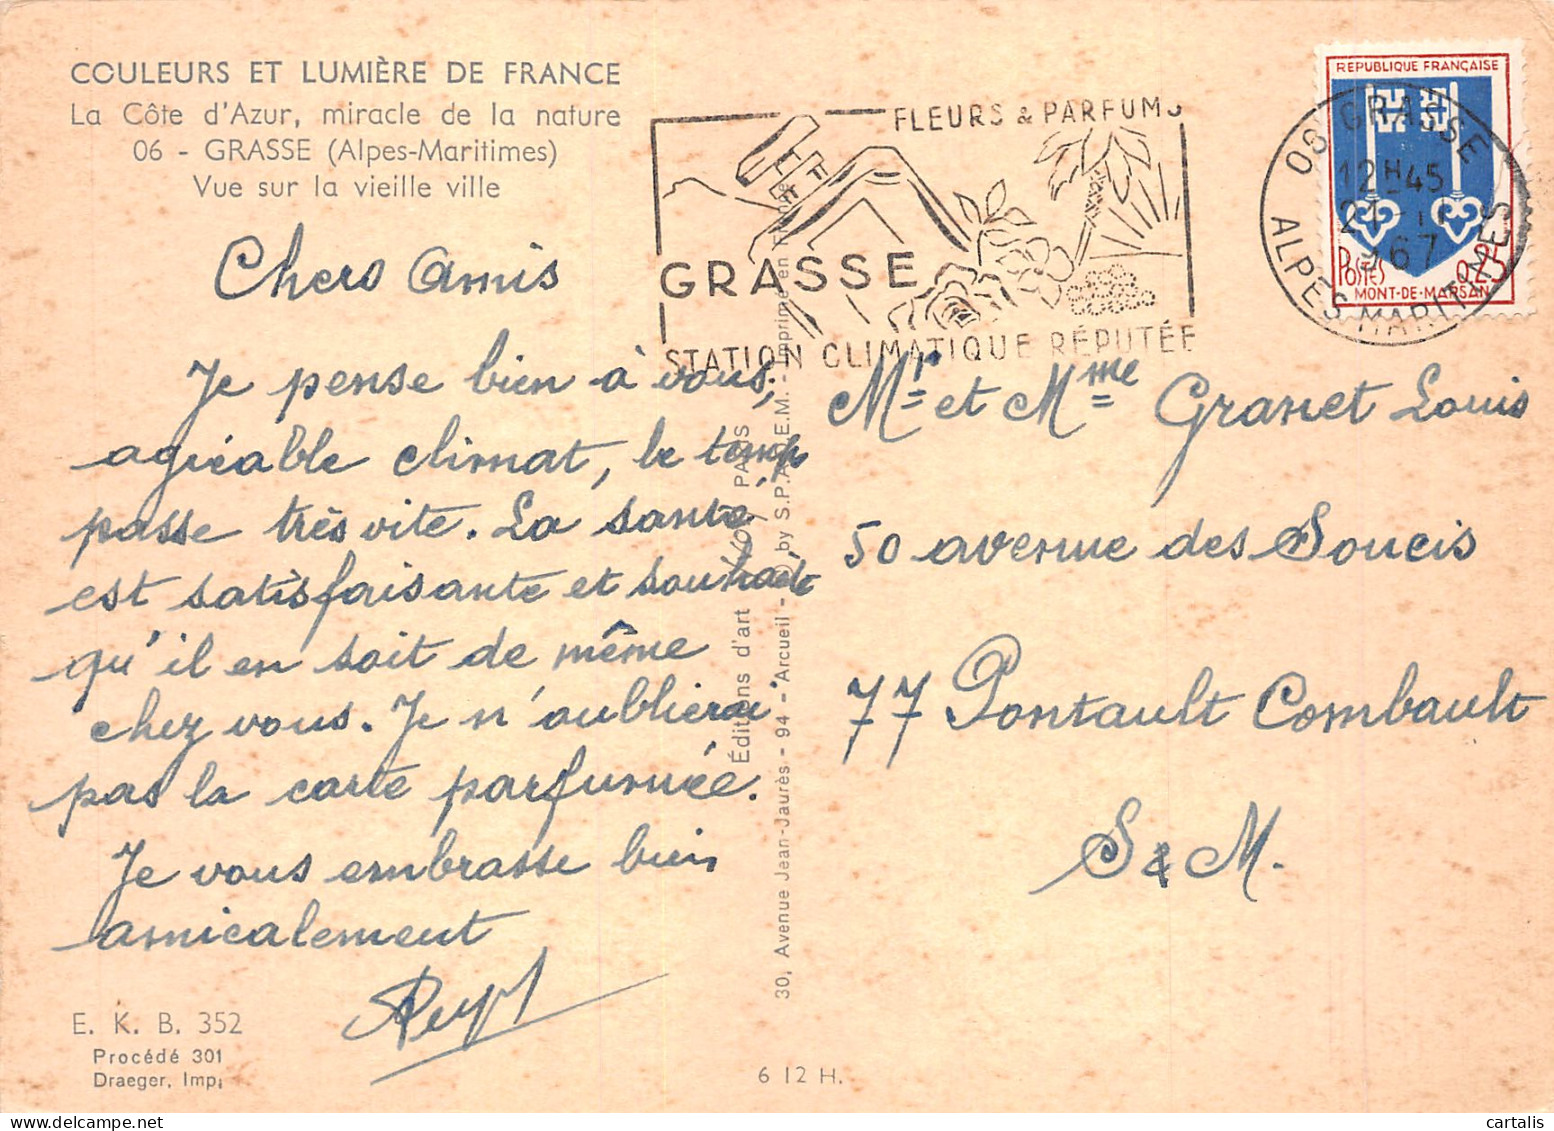 COULEURS ET LUMIÈRE DE FRANCE
La Côte d'Azur, miracle de la nature
06 - GRASSE (Alpes-Maritimes)
Vue sur la vieille ville
Chers Amis
Je pense bien à vous,
agréable climat, le temps
passe très vite. La santé
est satisfaisante et souhaite
qu'il en soit de même
chez vous. Je n'oublierai
pas la carte parfumée.
Je vous embrasse bien
amicalement
E. K. B. 352
Procédé 301
Draeger, Imp.
Éditions d'art PARIS
30, Avenue Jean-Jaurès - 94 - Arcueil - by S.P.A.D.E.M. - Imprimé en France
6 12 H.
FLEURS & PARFUMS
GRASSE
STATION CLIMATIQUE RÉPUTÉE
REPUBLIQUE FRANÇAISE
POSTES 0,25
MONT-DE-MARSAN
06 GRASSE
12H45
1967
ALPES-MARITIMES
Mr et Mme Granet Louis
50 avenue des Soucis
77 Pontault Combault
S & M.
cartalis